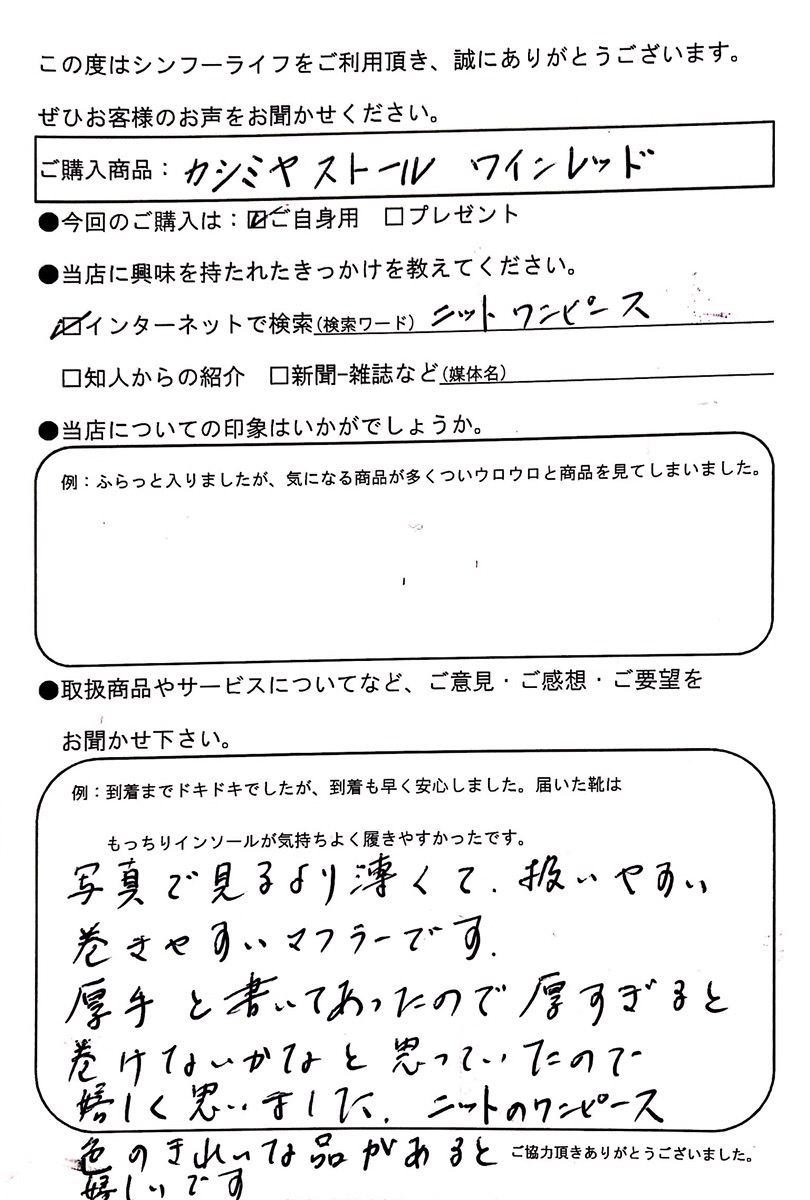 この度はシンフーライフをご利用頂き、誠にありがとうございます。
ぜひお客様のお声をお聞かせください。
ご購入商品： カシミヤストール ワインレッド
●今回のご購入は：☑ご自身用 □プレゼント
●当店に興味を持たれたきっかけを教えてください。
☑インターネットで検索(検索ワード) ニットワンピース
□知人からの紹介 □新聞-雑誌など(媒体名)
●当店についての印象はいかがでしょうか。
例：ふらっと入りましたが、気になる商品が多くついウロウロと商品を見てしまいました。
●取扱商品やサービスについてなど、ご意見・ご感想・ご要望を
お聞かせ下さい。
例：到着までドキドキでしたが、到着も早く安心しました。届いた靴は
もっちりインソールが気持ちよく履きやすかったです。
写真で見るより薄くて、扱いやすい
巻きやすいマフラーです.
厚手と書いてあったので厚すぎると
巻けないかなと思っていたので
嬉しく思いました. ニットのワンピース
色のきれいな品があると ご協力頂きありがとうございました。
嬉しいです